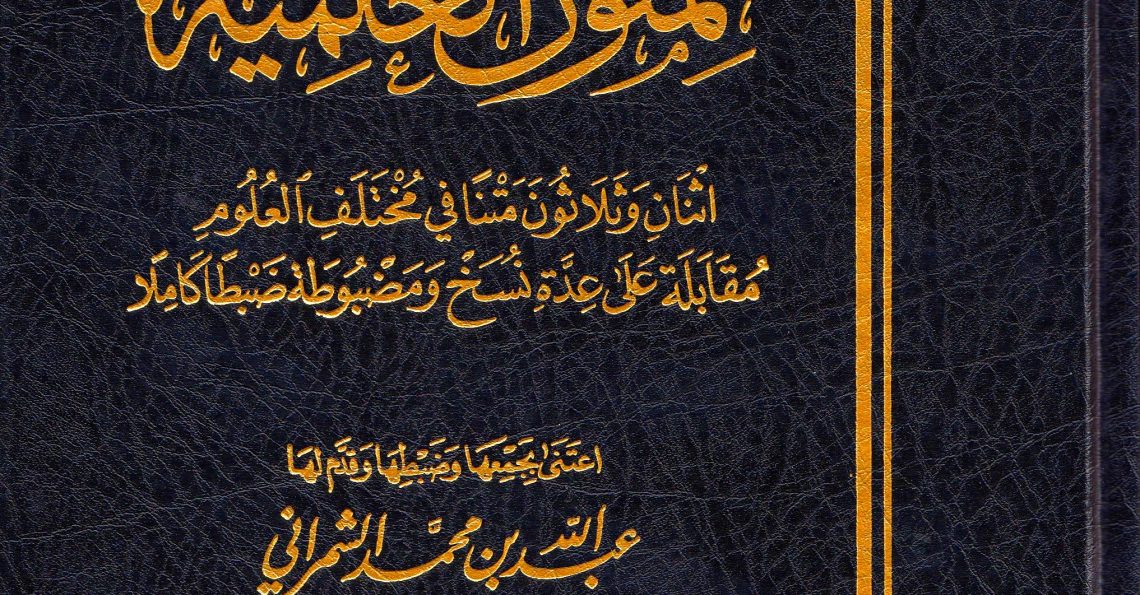 المتون العلمية
اثْنَانِ وَثَلَاثُونَ مَتْنًا فِي مُخْتَلَفِ العُلُومِ
مُقَابَلَة عَلَى عِدَّةِ نُسَخْ وَمَضْبُوطَة ضَبْطًا كَامِلًا
اعتَنَى بِجَمْعِهَا وَضَبْطِهَا وَقَدَّمَ لهَا
عبد الله بن محمَّد الشمراني